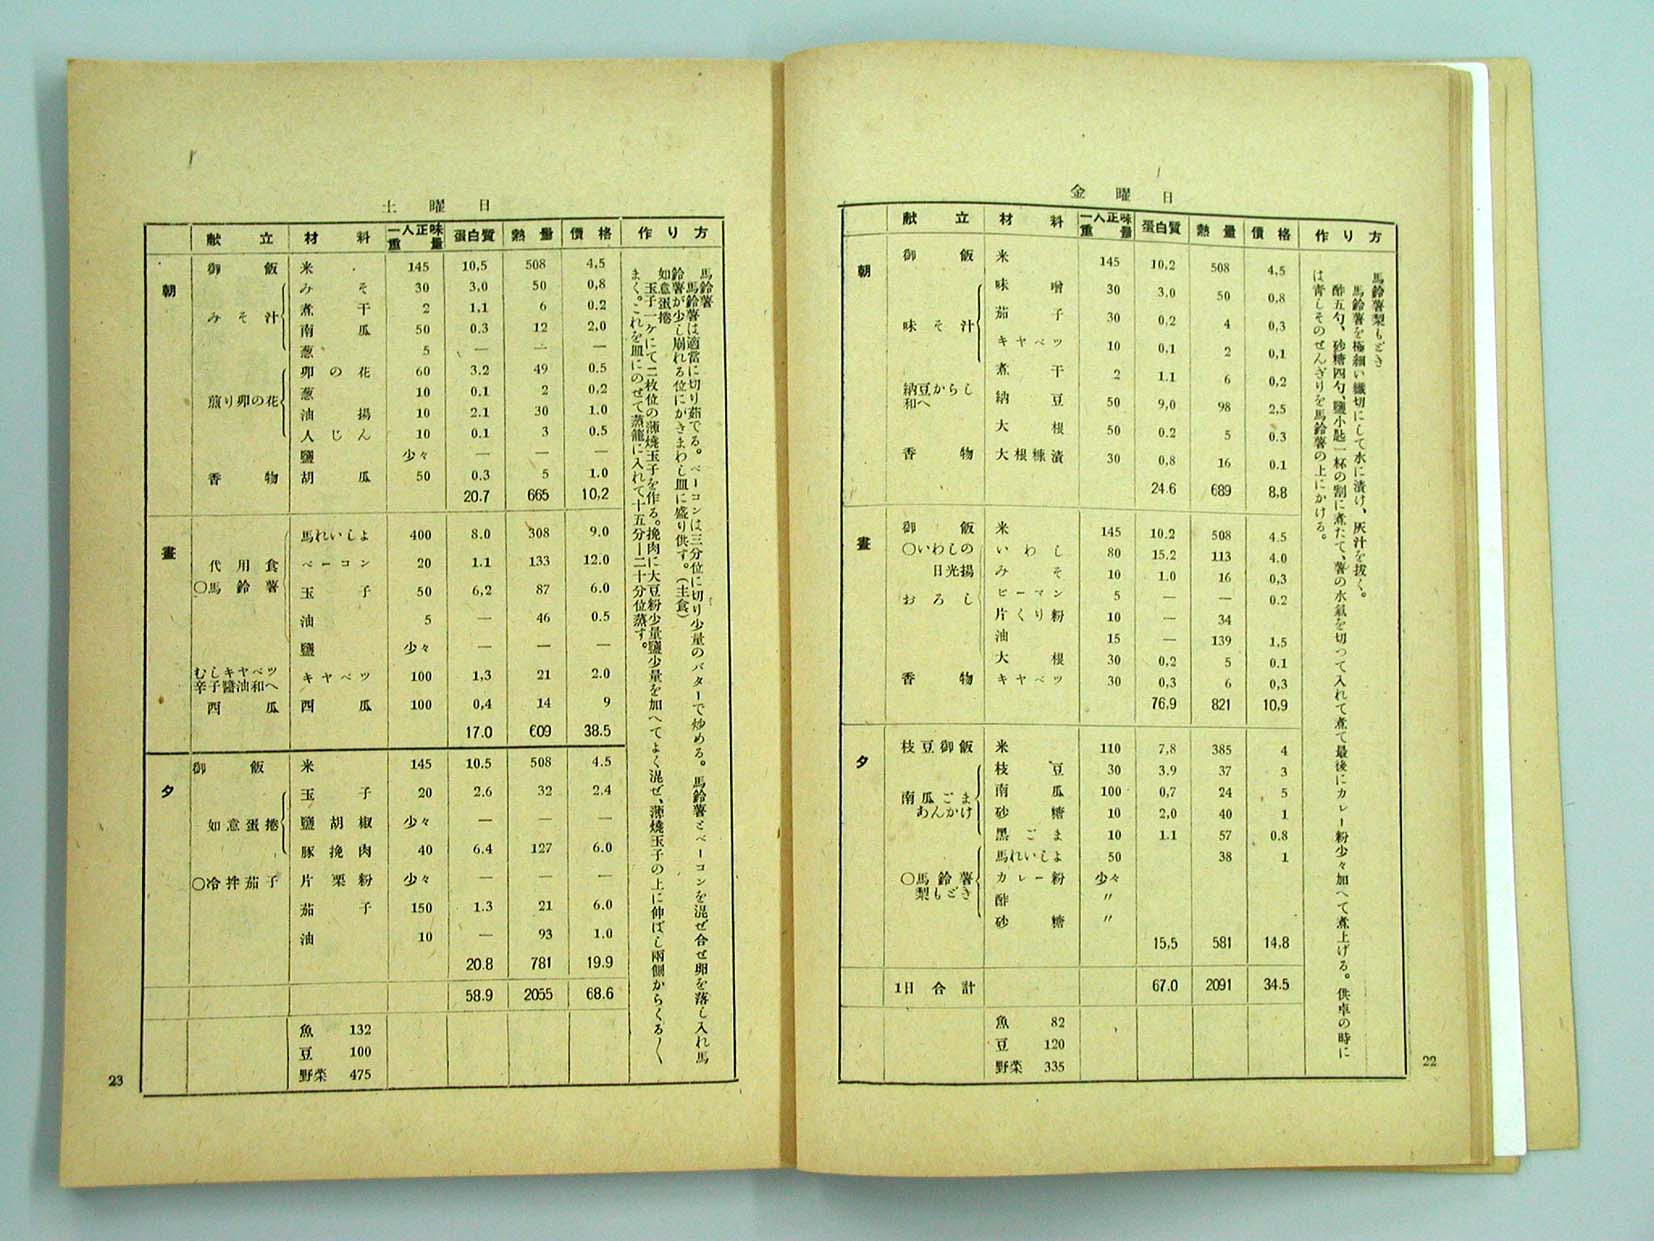 金曜日
献立 材料 一人正味重量 蛋白質 熱量 價格 作り方
朝
御飯 米 145 10,2 508 4,5
味そ汁 味噌 30 3,0 50 0,8
茄子 30 0,2 4 0,3
キヤベツ 10 0,1 2 0,1
煮干 2 1.1 6 0,2
納豆からし和へ 納豆 50 9,0 98 2,5
大根 50 0.2 5 0.3
香物 大根糠漬 30 0,8 16 0.1
24.6 689 8,8
晝
御飯 米 145 10.2 508 4.5
○いわしの日光揚 いわし 80 15.2 113 4.0
みそ 10 1.0 16 0,3
おろし ピーマン 5 — — 0.2
片くり粉 10 — 34
油 15 — 139 1,5
大根 30 0,2 5 0.1
香物 キヤベツ 30 0,3 6 0,3
76,9 821 10,9
夕
枝豆御飯 米 110 7,8 385 4
枝豆 30 3.9 37 3
南瓜ごまあんかけ 南瓜 100 0,7 24 5
砂糖 10 2,0 40 1
黒ごま 10 1.1 57 0.8
○馬鈴薯梨もどき 馬れいしよ 50 38 1
カレー粉 少々
酢 〃
砂糖 〃
15,5 581 14,8
1日合計 67.0 2091 34.5
魚 82
豆 120
野菜 335
馬鈴薯梨もどき
馬鈴薯を極細い繊切にして水に漬け、灰汁を抜く。
酢五勺、砂糖四勺、鹽小匙一杯の割に煮たて、薯の水氣を切つて入れて煮て最後にカレー粉少々加へて煮上げる。供卓の時に
は青しそのせんぎりを馬鈴薯の上にかける。
22
土曜日
献立 材料 一人正味重量 蛋白質 熱量 價格 作り方
朝
御飯 米 145 10,5 508 4,5
みそ汁 みそ 30 3,0 50 0,8
煮干 2 1,1 6 0.2
南瓜 50 0.3 12 2,0
葱 5 — — —
煎り卯の花 卯の花 60 3.2 49 0.5
葱 10 0.1 2 0,2
油揚 10 2.1 30 1.0
人じん 10 0.1 3 0.5
鹽 少々 — — —
香物 胡瓜 50 0.3 5 1.0
20.7 665 10,2
晝
代用食 馬れいしよ 400 8.0 308 9.0
○馬鈴薯 ベーコン 20 1.1 133 12.0
玉子 50 6,2 87 6.0
油 5 — 46 0.5
鹽 少々 — — —
むしキヤベツ辛子醬油和へ キヤベツ 100 1,3 21 2.0
西瓜 西瓜 100 0,4 14 9
17.0 609 38.5
夕
御飯 米 145 10.5 508 4.5
如意蛋捲 玉子 20 2.6 32 2.4
鹽胡椒 少々 — — —
豚挽肉 40 6.4 127 6.0
○冷拌茄子 片栗粉 少々 — — —
茄子 150 1.3 21 6.0
油 10 — 93 1.0
20.8 781 19.9
58.9 2055 68.6
魚 132
豆 100
野菜 475
馬鈴薯
馬鈴薯は適當に切り茹でる。ベーコンは三分位に切り少量のバターで炒める。馬鈴薯とベーコンを混ぜ合せ卵を落し入れ馬
鈴薯が少し崩れる位にかきまわし皿に盛り供す。(主食)
如意蛋捲
玉子一ケにて二枚位の薄燒玉子を作る。挽肉に大豆粉少量鹽少量を加へてよく混ぜ、薄燒玉子の上に伸ばし兩側からくる〱
まく。これを皿にのせて蒸籠に入れて十五分—二十分位蒸す。
23